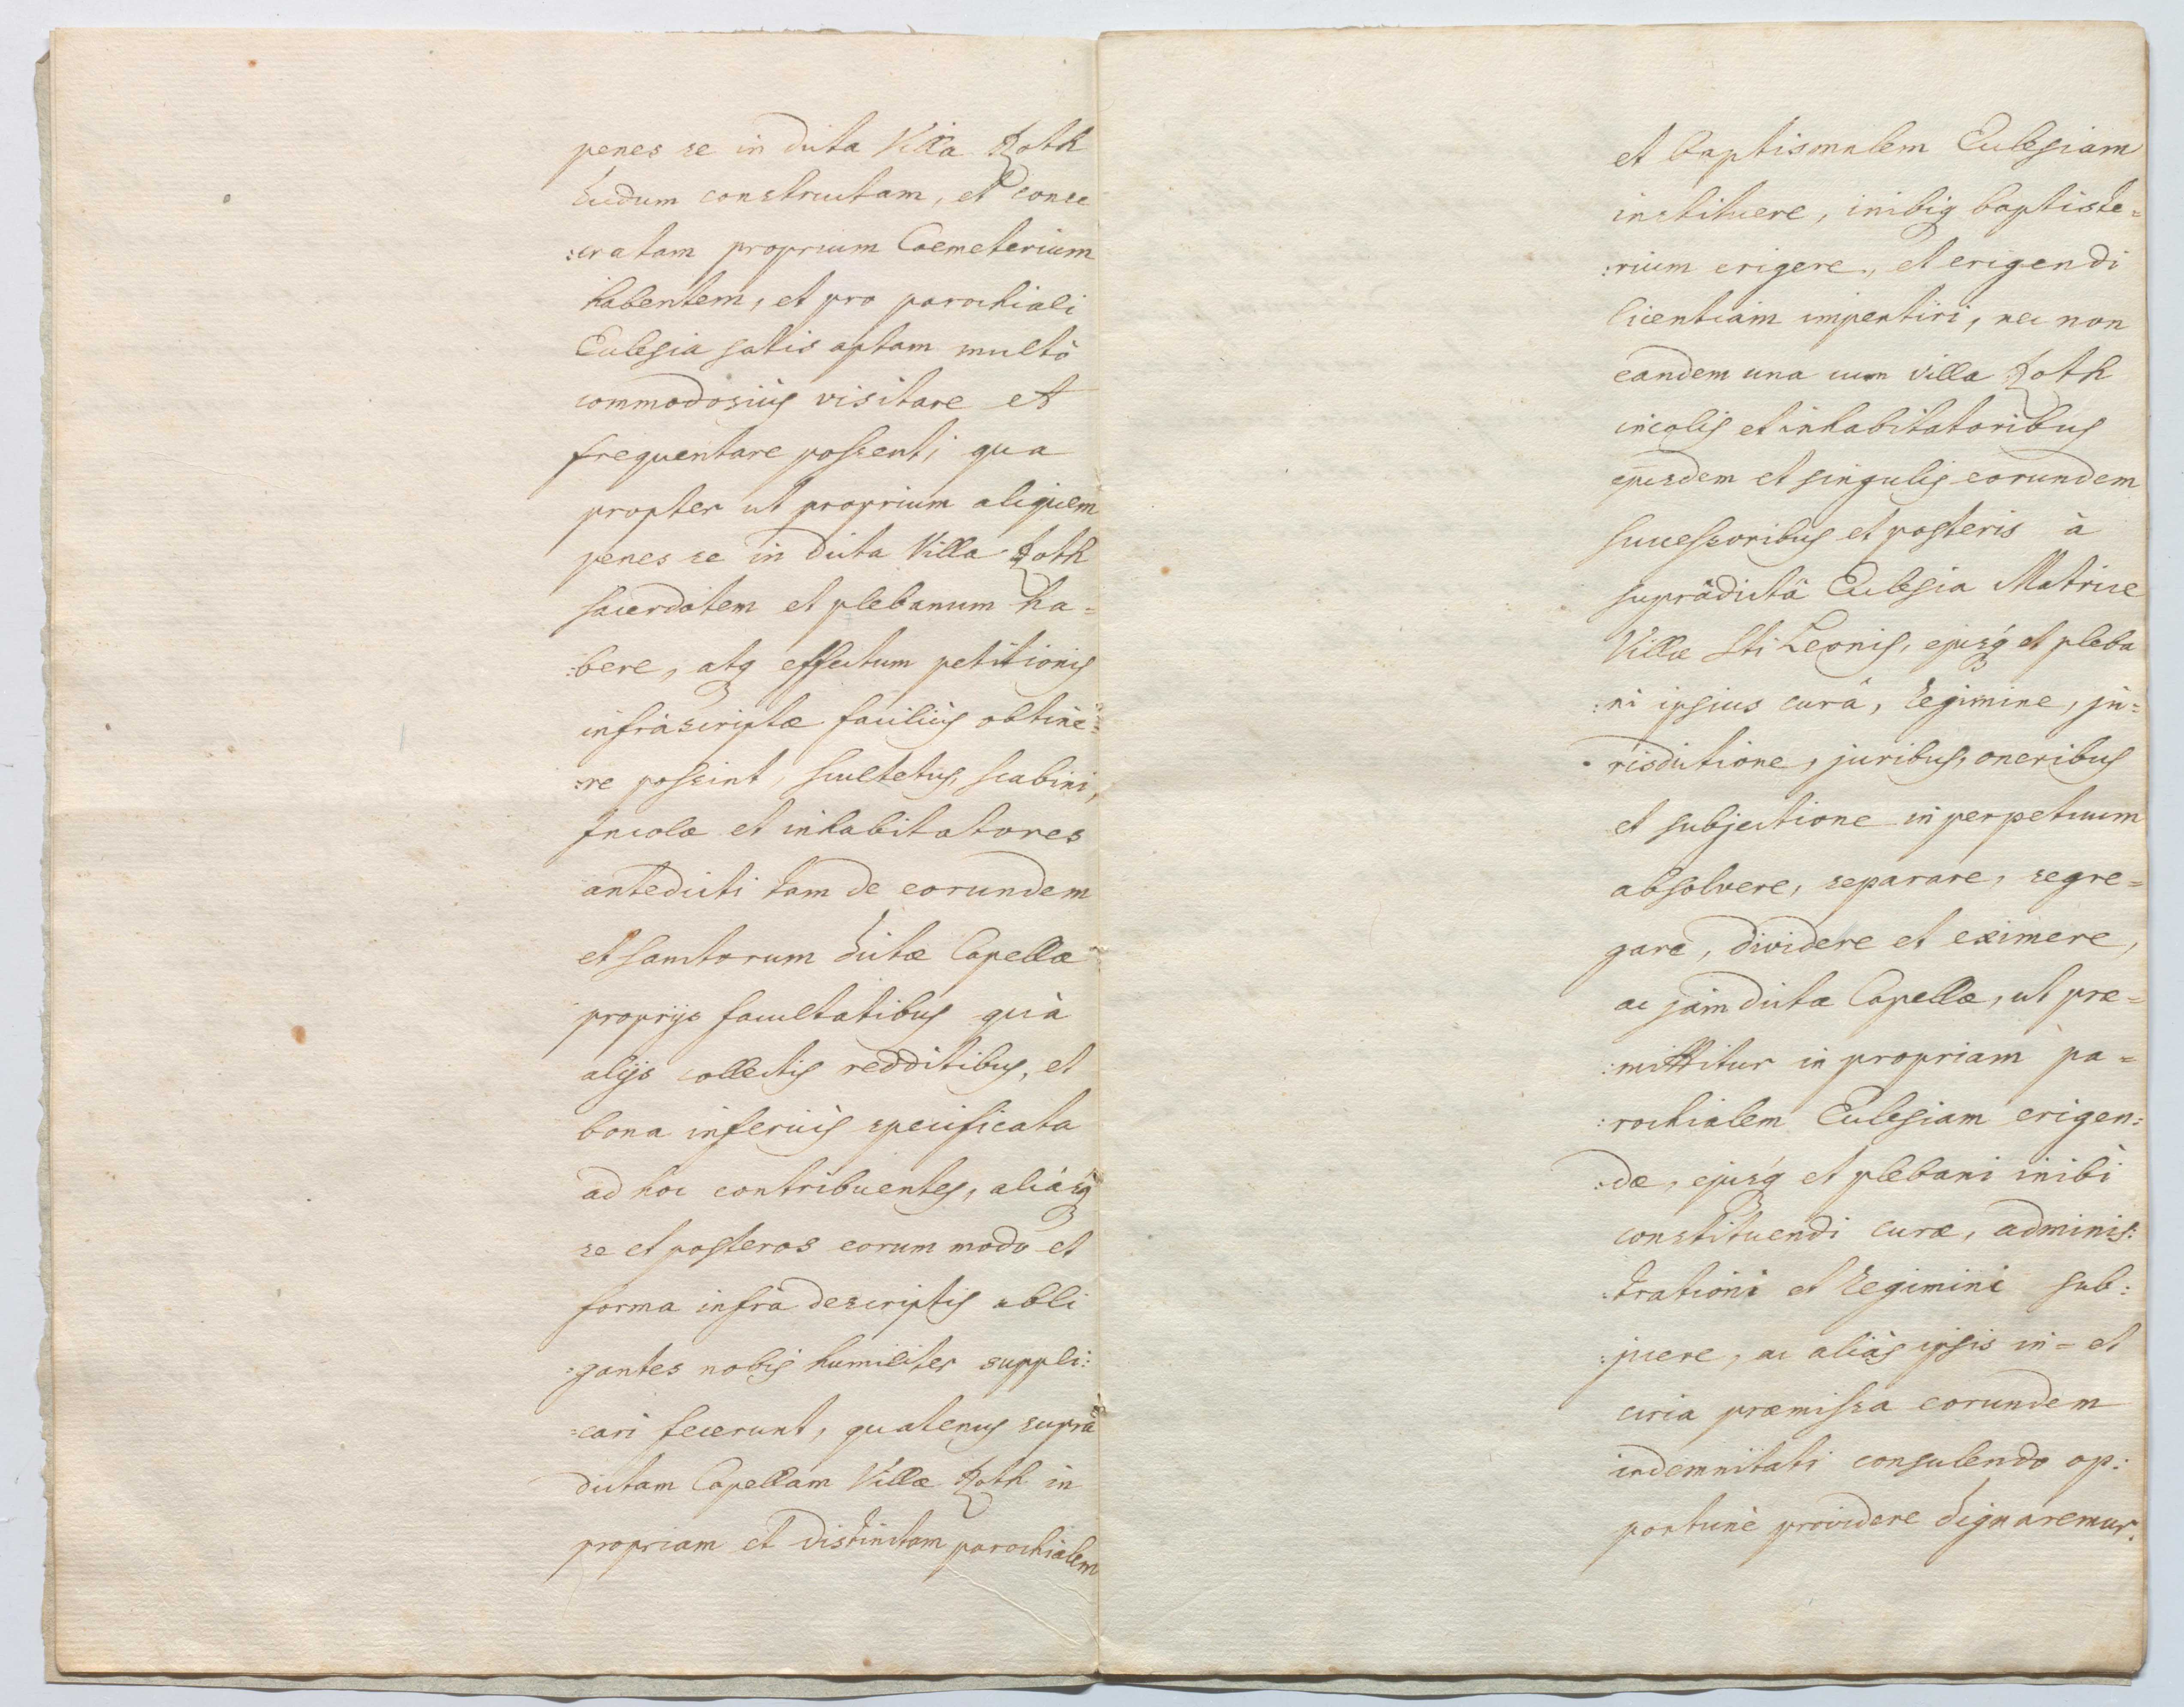 penes se in dicta Villa Roth
dudum constructam, et conse
:cratam proprium Coemeterium
habentem, et pro parochiali
Ecclesia satis aptam multò
commodosiùs visitare et
frequentare possent; qua
propter ut proprium aliquem
penes se in dicta Villa Roth
sacerdotem et plebanum ha=
:bere, atq effectum petitionis
infrascriptæ faciliùs obtine=
:re possint, scultetus, scabini,
Incolæ et inhabitatores
antedicti tam de eorundem
et sanctorum dictæ Capellæ
proprijs facultatibus quà
alijs collectis redditibus, et
bona inferiùs specificata
ad hoc contribuentes, aliàsq
se et posteros eorum modo et
forma infrà descriptis obli
:gantes nobis humiliter suppli:
=cari fecerunt, quatenus suprà
dictam Capellam Villæ Roth in
propriam et distinctam parochialem
et baptismalem Ecclesiam
instituere, inibiq baptiste=
:rium erigere, et erigendi
licentiam impertiri, nec non
eandem una cum villa Roth
incolis et inhabitatoribus
ejusdem et singulis eorundem
successoribus et posteris à
supràdictâ Ecclesia Matrice
Villæ Sti Leonis, ejusq et pleba
:ni ipsius curâ, regimine, ju=
risdictione, juribus, oneribus
et subjectione in perpetuum
absolvere, separare, segre=
gare, dividere et eximere,
ac jàm dicta Capellæ, ut præ=
:mittitur in propriam pa=
:rochialem Ecclesiam erigen:
:dæ, ejusq et plebani inibi
constituendi curæ, adminis:
:trationi et regimini sub:
:jicere, ac aliàs ipsis in= et
circa præmissa eorundem
indemnitati consulendo op:
portunè providere dignaremur.